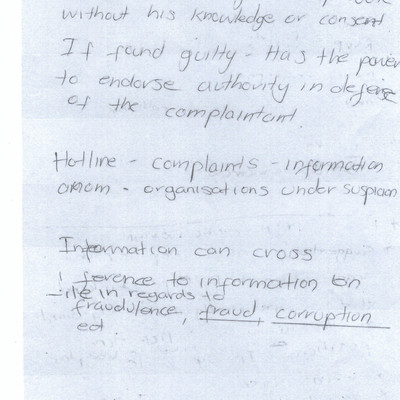 without his knowledge or consent
If found guilty - Has the power
to endorse authority in defense
of the complaintant
Hotline - complaints - information
- organisations under suspicion
Information can cross
ference to information on
in regards to
fraudulence, fraud, corruption
ect